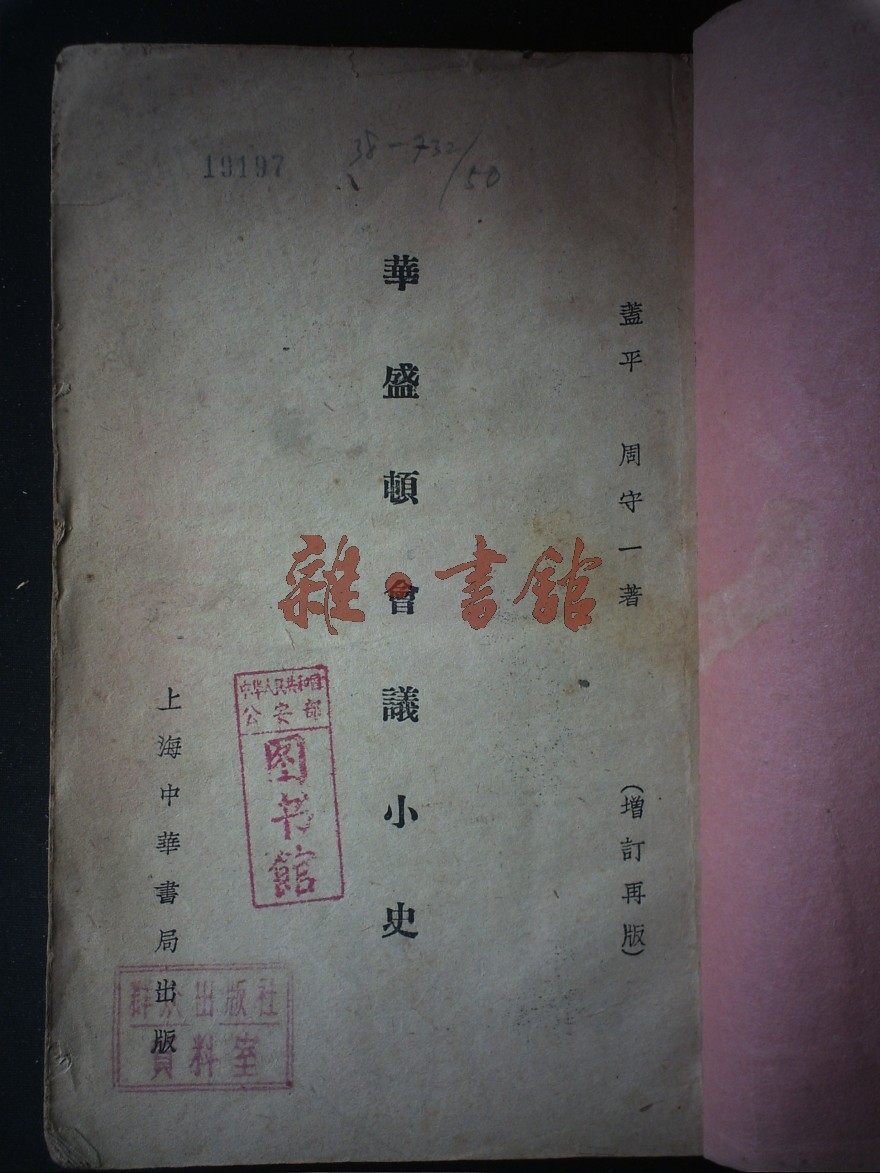 19197
38-732/50
蓋平 周守一著 (增訂再版)
華盛頓會議小史
上海中華書局出版
雜·書館
中华人民共和国
公安部
图书馆
群众出版社
資料室